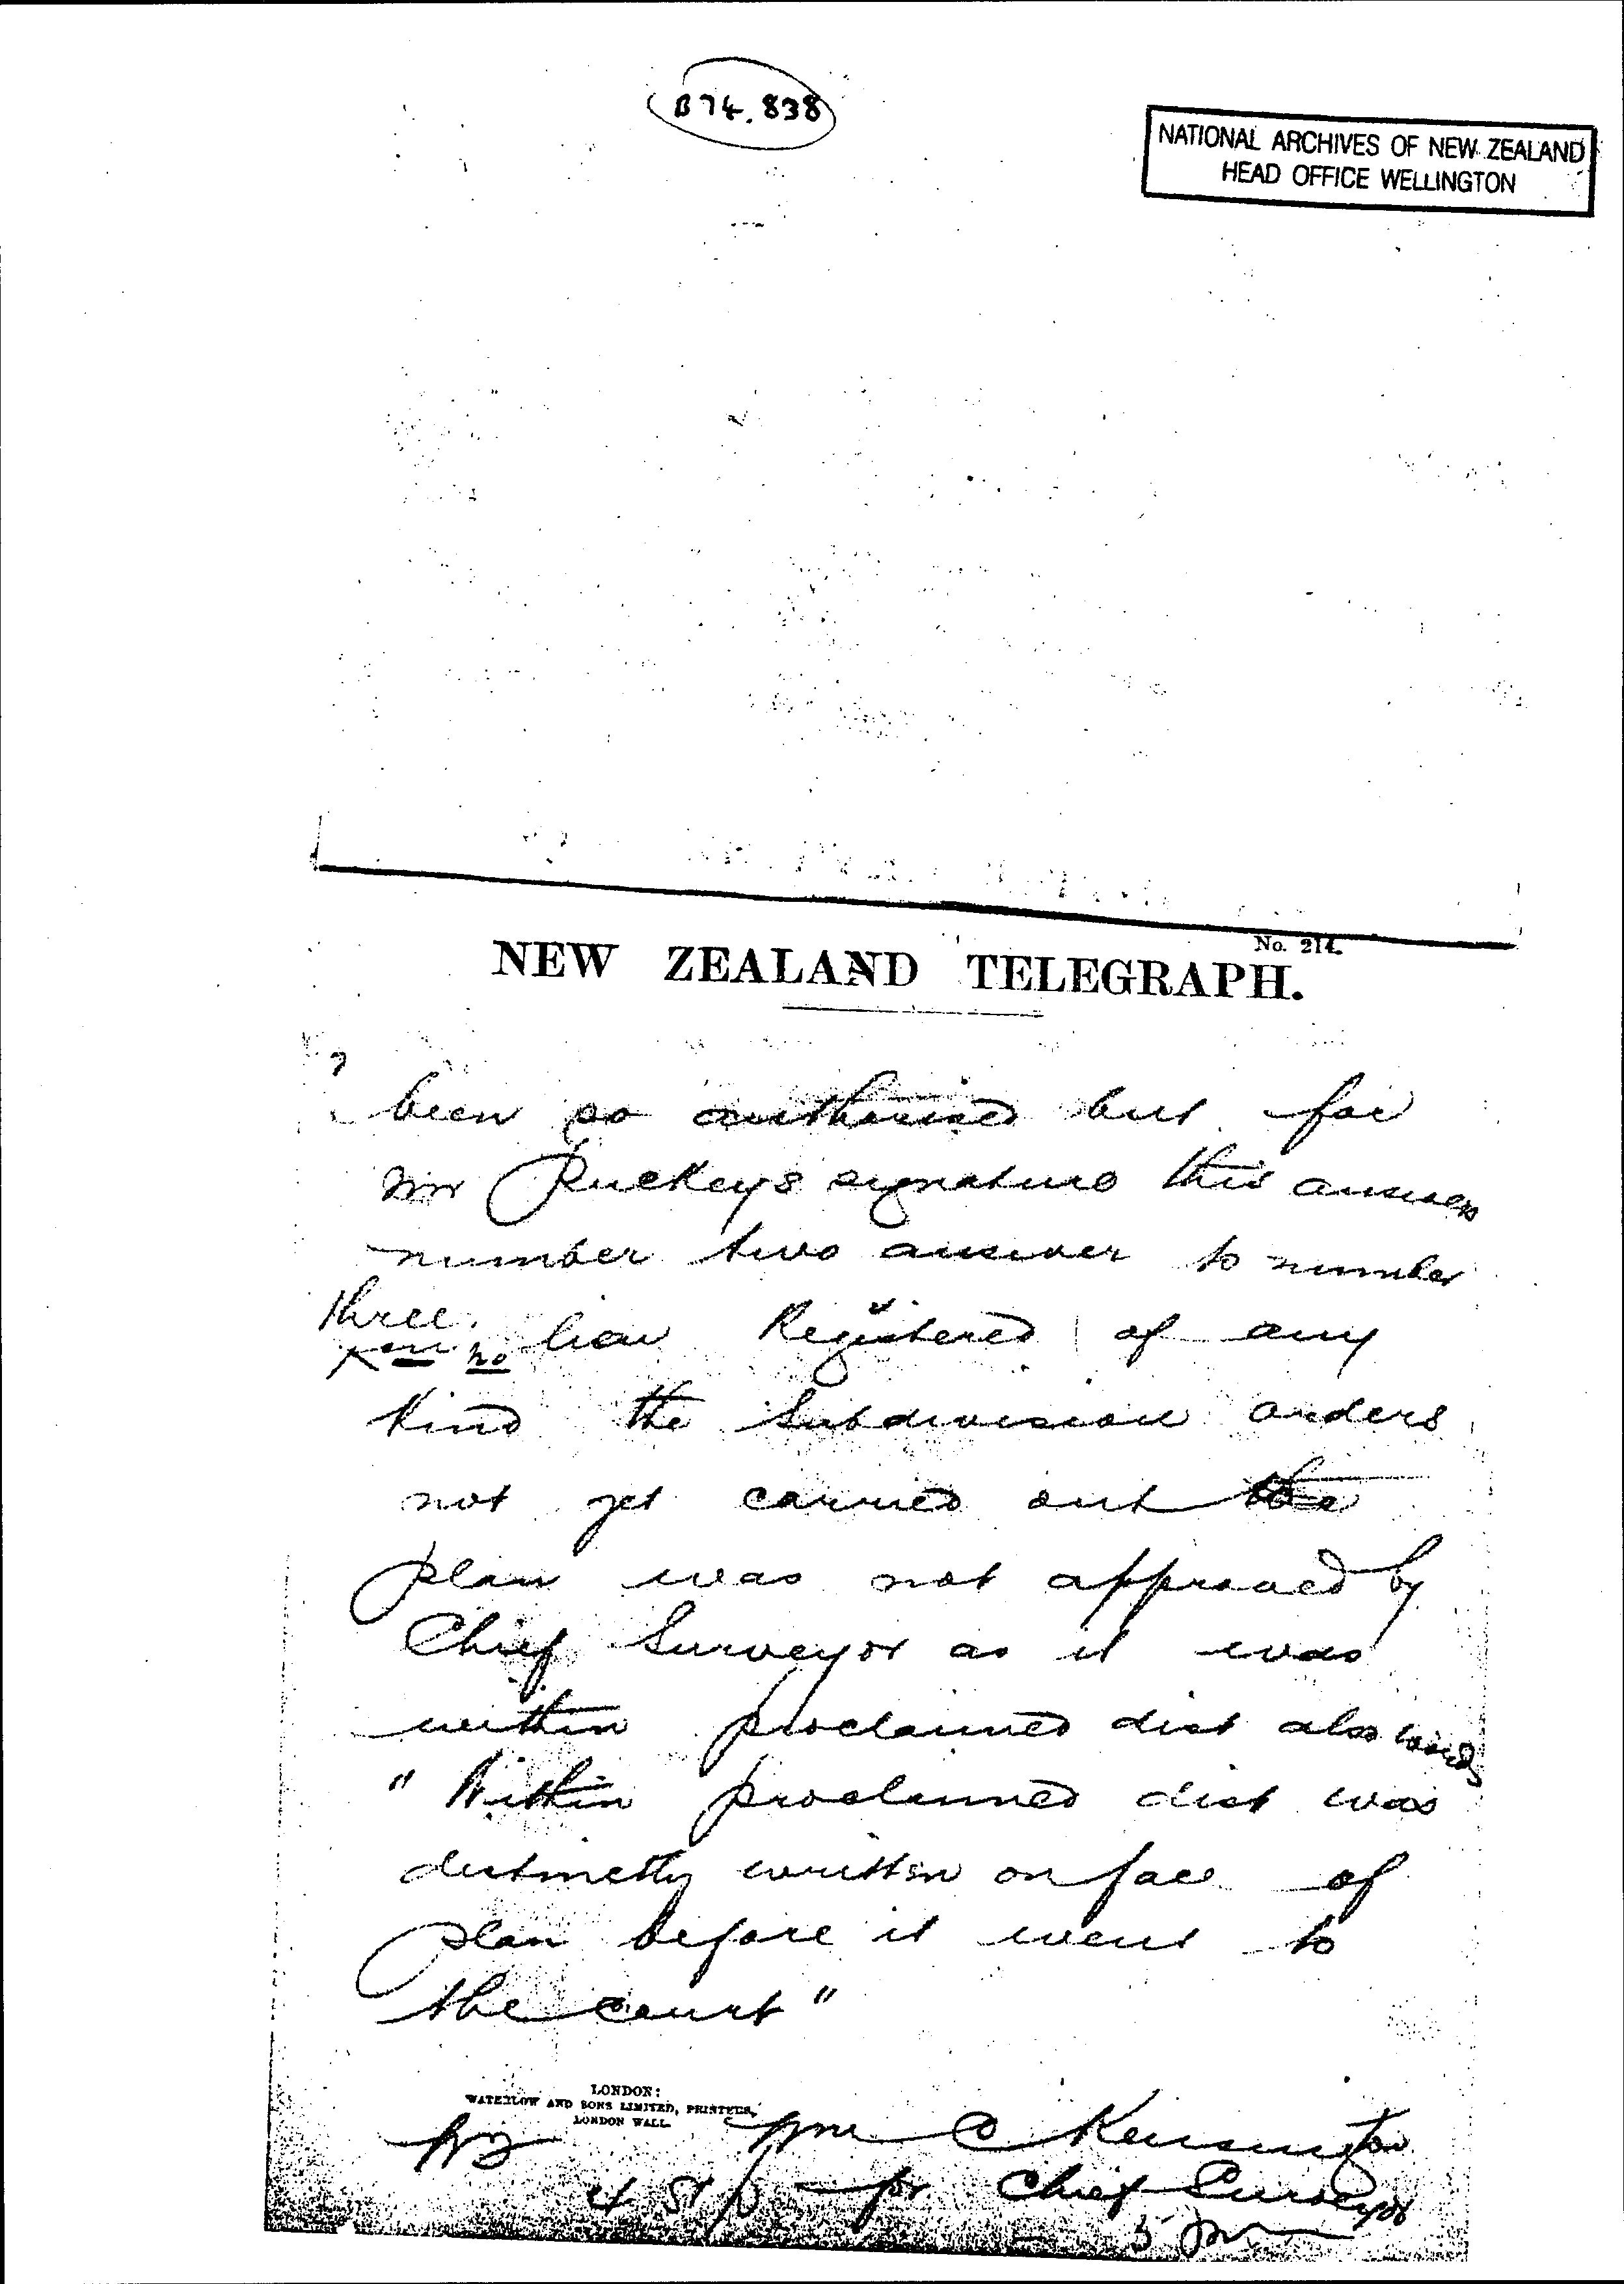 B74.838
NATIONAL ARCHIVES OF NEW ZEALAND
HEAD OFFICE WELLINGTON
No. 214.
NEW ZEALAND TELEGRAPH.
been so authorised but for
Mr Puckeys signature this answers
number two answer to number
three
no lien Registered of any
kind the Subdivision orders
not yet carried out the
plan was not approved by
Chief Surveyor as it was
within proclaimed dist also words
" Within proclaimed dist was
distinctly written on face of
plan before it went to
the court "
LONDON:
WATERLOW AND SONS LIMITED, PRINTERS,
LONDON WALL
Wm C Kensington
for Chief Surveyor